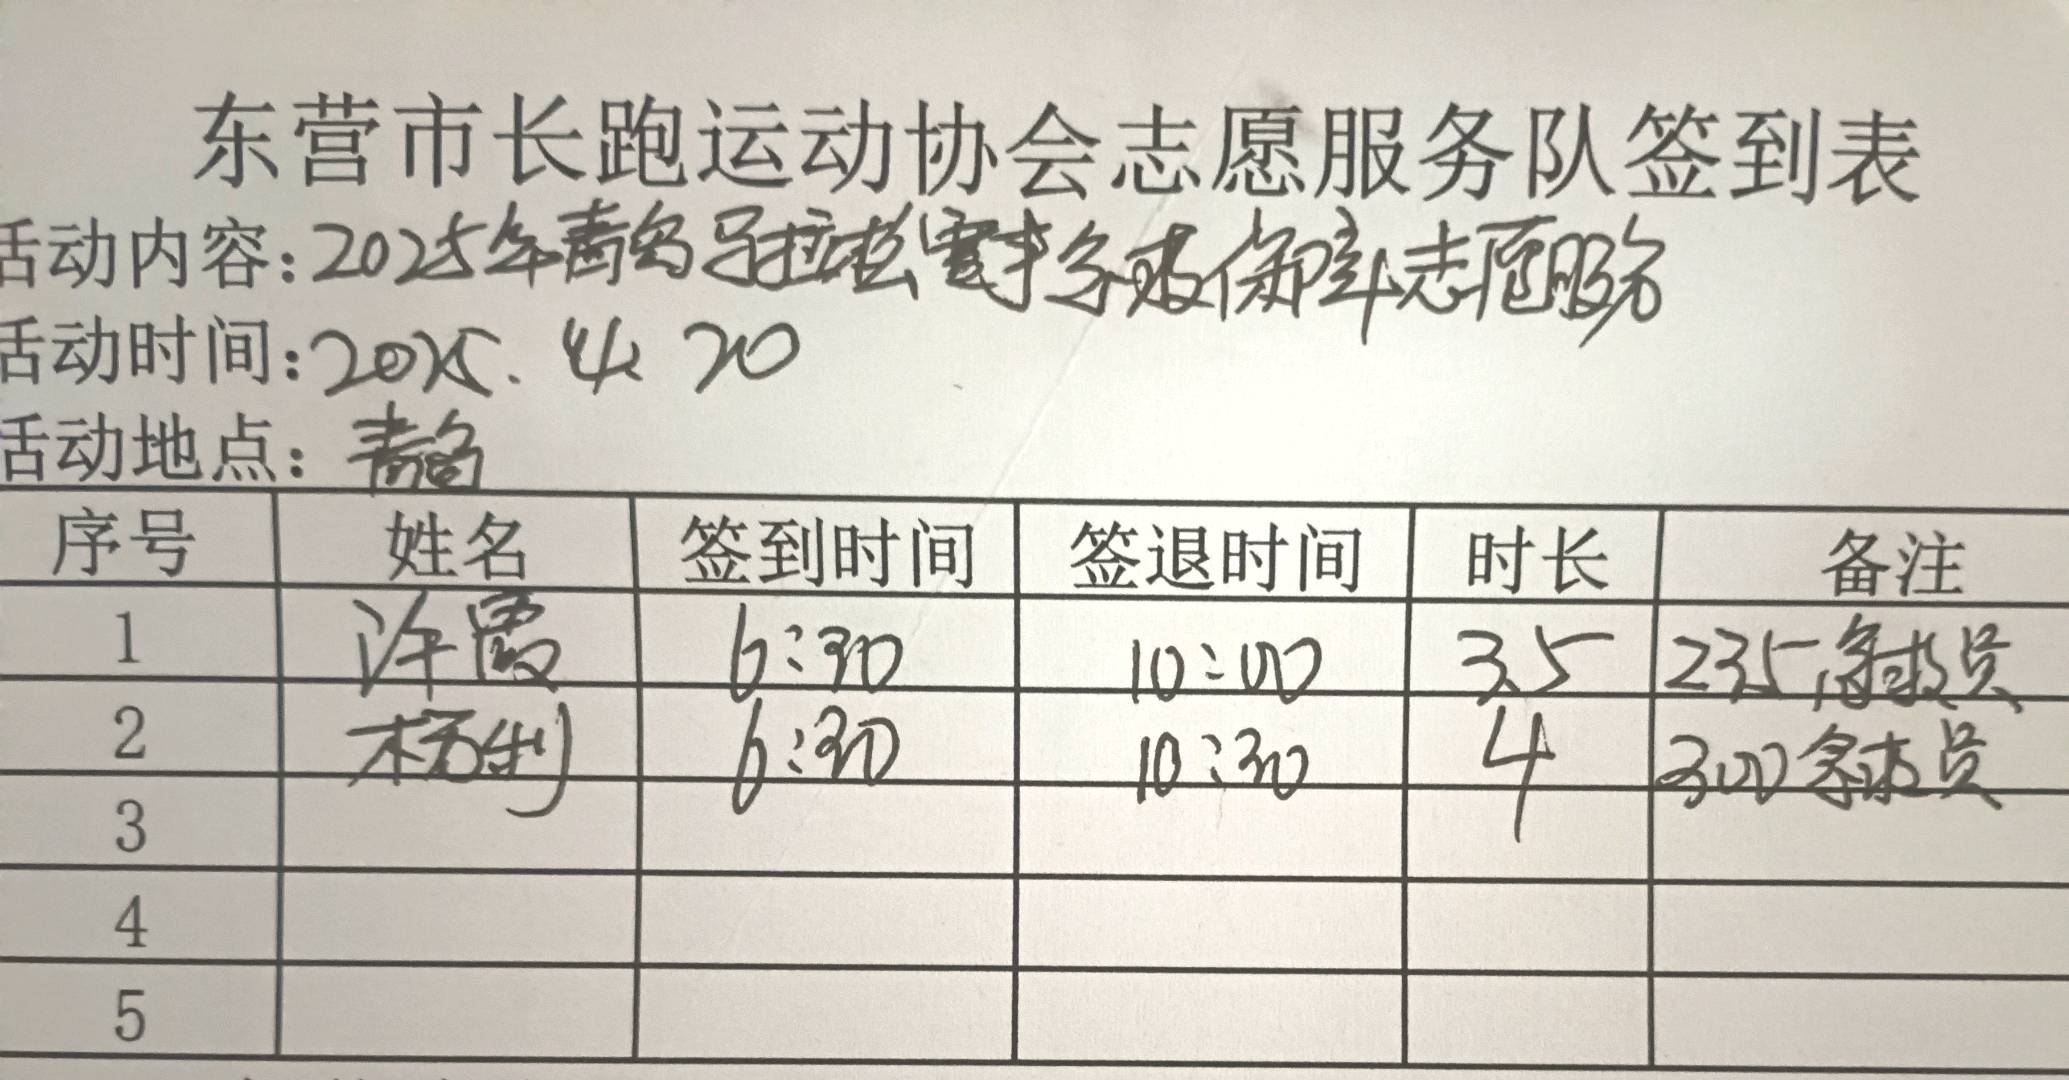 东营市长跑运动协会志愿服务队签到表
活动内容：2025年青岛马拉松赛事急救保障志愿服务
活动时间：2025.4.20
活动地点：青岛
序号 姓名 签到时间 签退时间 时长 备注
1 许霞 6:30 10:00 3.5 235急救员
2 杨利 6:30 10:30 4 300急救员
3
4
5